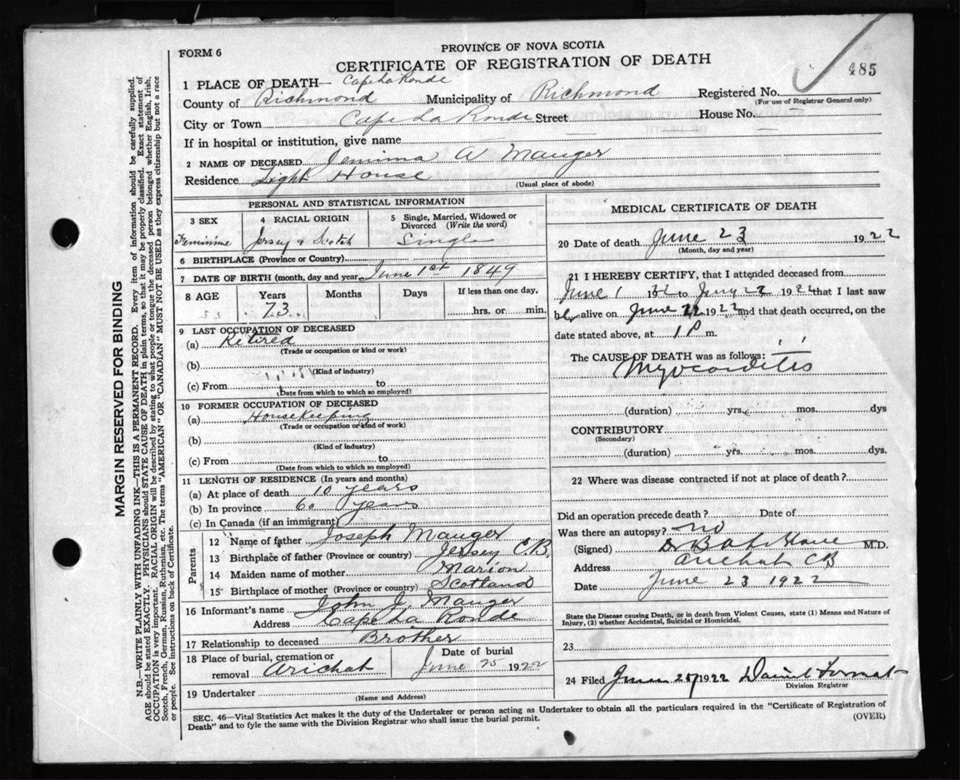 FORM 6
PROVINCE OF NOVA SCOTIA
CERTIFICATE OF REGISTRATION OF DEATH
485
1 PLACE OF DEATH— Cape La Ronde
County of Richmond Municipality of Richmond Registered No.
(For use of Registrar General only)
City or Town Cape La Ronde Street House No.
If in hospital or institution, give name
2 NAME OF DECEASED Jemima A Mauger
Residence Light House
(Usual place of abode)
PERSONAL AND STATISTICAL INFORMATION
3 SEX 4 RACIAL ORIGIN 5 Single, Married, Widowed or Divorced (Write the word)
Feminine Jersey & Scotch Single
6 BIRTHPLACE (Province or Country)
7 DATE OF BIRTH (month, day and year) June 1st 1849
8 AGE Years Months Days If less than one day,
73 hrs. or min.
9 LAST OCCUPATION OF DECEASED
(a) Retired
(Trade or occupation or kind or work)
(b)
(Kind of industry)
(c) From to
(Date from which to which so employed)
10 FORMER OCCUPATION OF DECEASED
(a) Housekeeping
(Trade or occupation or kind of work)
(b)
(Kind of industry)
(c) From to
(Date from which to which so employed)
11 LENGTH OF RESIDENCE (In years and months)
(a) At place of death 10 years
(b) In province 60 years
(c) In Canada (if an immigrant)
Parents
12 Name of father Joseph Mauger
13 Birthplace of father (Province or country) Jersey
14 Maiden name of mother Marion
15 Birthplace of mother (Province or country) Scotland
16 Informant's name John J. Mauger
Address Cape La Ronde
17 Relationship to deceased Brother
18 Place of burial, cremation or removal Arichat
Date of burial
June 25 1922
19 Undertaker
(Name and Address)
MEDICAL CERTIFICATE OF DEATH
20 Date of death June 23 1922
(Month, day and year)
21 I HEREBY CERTIFY, that I attended deceased from
June 1 to 1922 that I last saw
alive on June 22 1922 and that death occurred, on the
date stated above, at 1 P m.
The CAUSE OF DEATH was as follows:
Myocarditis
(duration) yrs. mos. dys
CONTRIBUTORY
(Secondary)
(duration) yrs. mos. dys.
22 Where was disease contracted if not at place of death?
Did an operation precede death? Date of
Was there an autopsy? no
(Signed) M.D.
Address Arichat CB
Date June 23 1922
State the Disease causing Death, or in death from Violent Causes, state (1) Means and Nature of
Injury, (2) whether Accidental, Suicidal or Homicidal.
23
24 Filed 1922 Daniel
Division Registrar
SEC. 46—Vital Statistics Act makes it the duty of the Undertaker or person acting as Undertaker to obtain all the particulars required in the "Certificate of Registration of
Death" and to fyle the same with the Division Registrar who shall issue the burial permit.
(OVER)
MARGIN RESERVED FOR BINDING
N.B.—WRITE PLAINLY WITH UNFADING INK—THIS IS A PERMANENT RECORD. Every item of information should be carefully supplied.
AGE should be stated EXACTLY. PHYSICIANS should STATE CAUSE OF DEATH in plain terms, so that it may be properly classified. Exact statement of
OCCUPATION is very important. RACIAL ORIGIN will be described by stating to what people or tongue the deceased person belonged whether English, Irish,
Scotch, French, German, Russian, Ruthenian, etc. The terms "AMERICAN" OR "CANADIAN" MUST NOT BE USED as they express citizenship but not a race
or people. See instructions on back of Certificate.